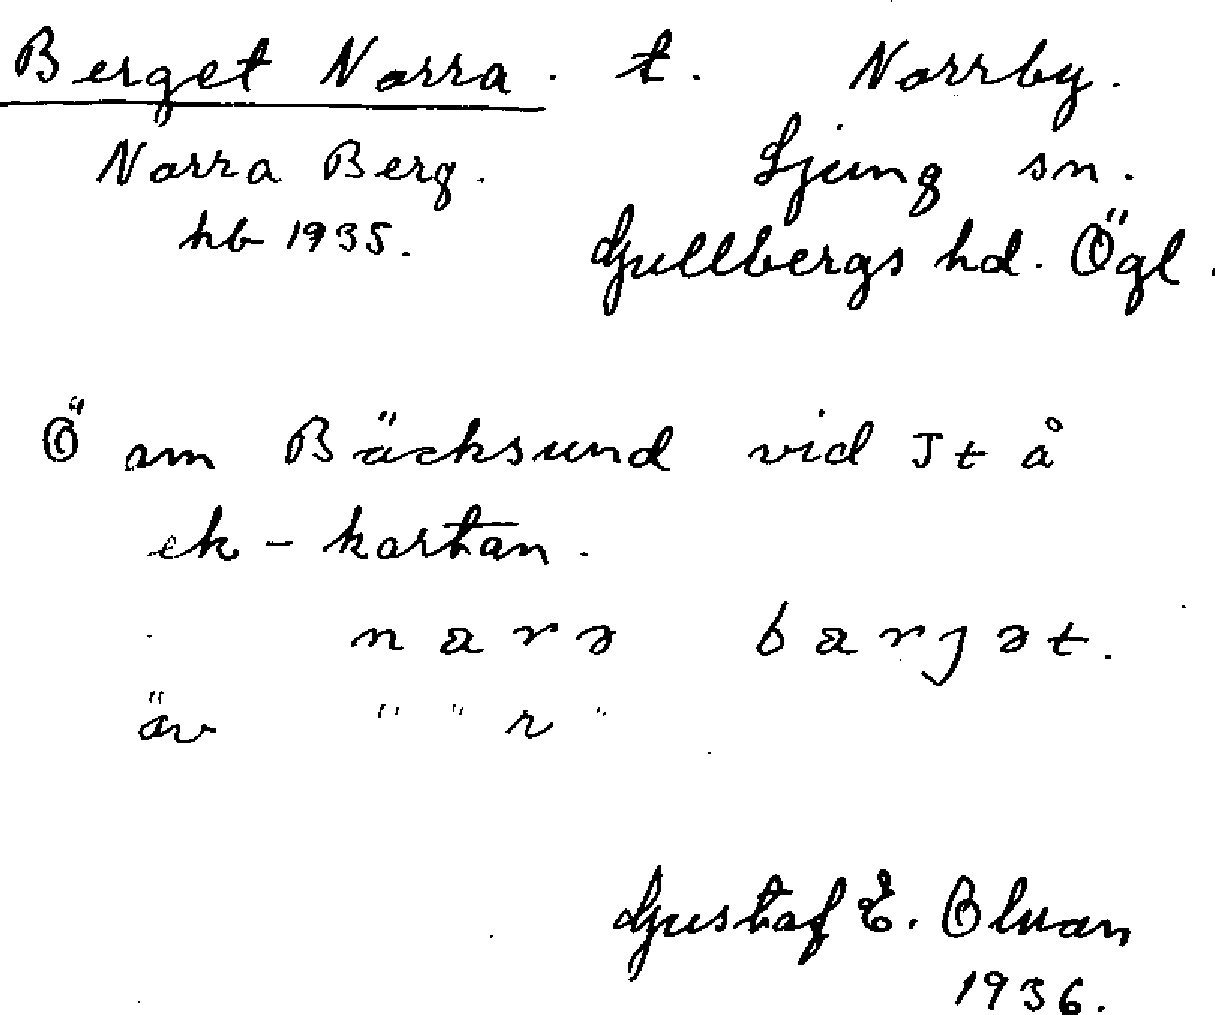 Berget Norra. t. Norrby.
Norra Berg. Ljung sn.
hb 1935. Gullbergs hd. Ögl.
Ö om Bäcksund vid Jt å
ek-kartan.
narə barjət.
äv " " r "
Gustaf E. Olman
1936.